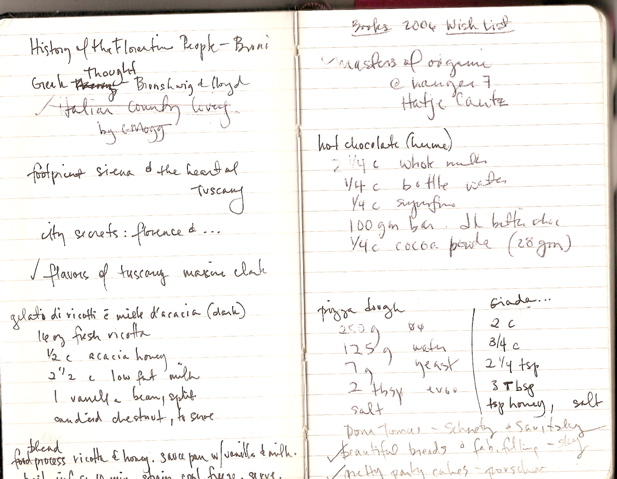 History of the Florentine People - Bruni
Greek thought Brunshwig & Lloyd
✓ Italian Country Living
by C. Mogg
footprint siena & the heart of
Tuscany
city secrets: florence & ...
✓ flavors of tuscany maxine clark
gelato di ricotti è miele d'acacia (dark)
16 oz fresh ricotta
1/2 c acacia honey
2 1/2 c low fat milk
1 vanilla bean, split
candied chestnut, to serve
blend
food process ricotta & honey. sauce pan w/ vanilla & milk.
boil, strain, cool, freeze, serve.
Books 2004 Wish List
✓ masters of origami
@ hangar 7
Hatje Cantz
hot chocolate (hume)
2 1/4 c whole milk
1/4 c bottle water
1/4 c superfine
100 gm bar dk bitter choc
1/4 c cocoa powde (28 gm)
pizza dough
250 g 00
125 g water
7 g yeast
2 tbsp evoo
salt
Giada...
2 c
3/4 c
2 1/4 tsp
3 Tbsp
tsp honey, salt
Dona Tomas - Schnetz & Savitsky
✓ beautiful breads & fab. filling
✓ pretty party cakes - porschen